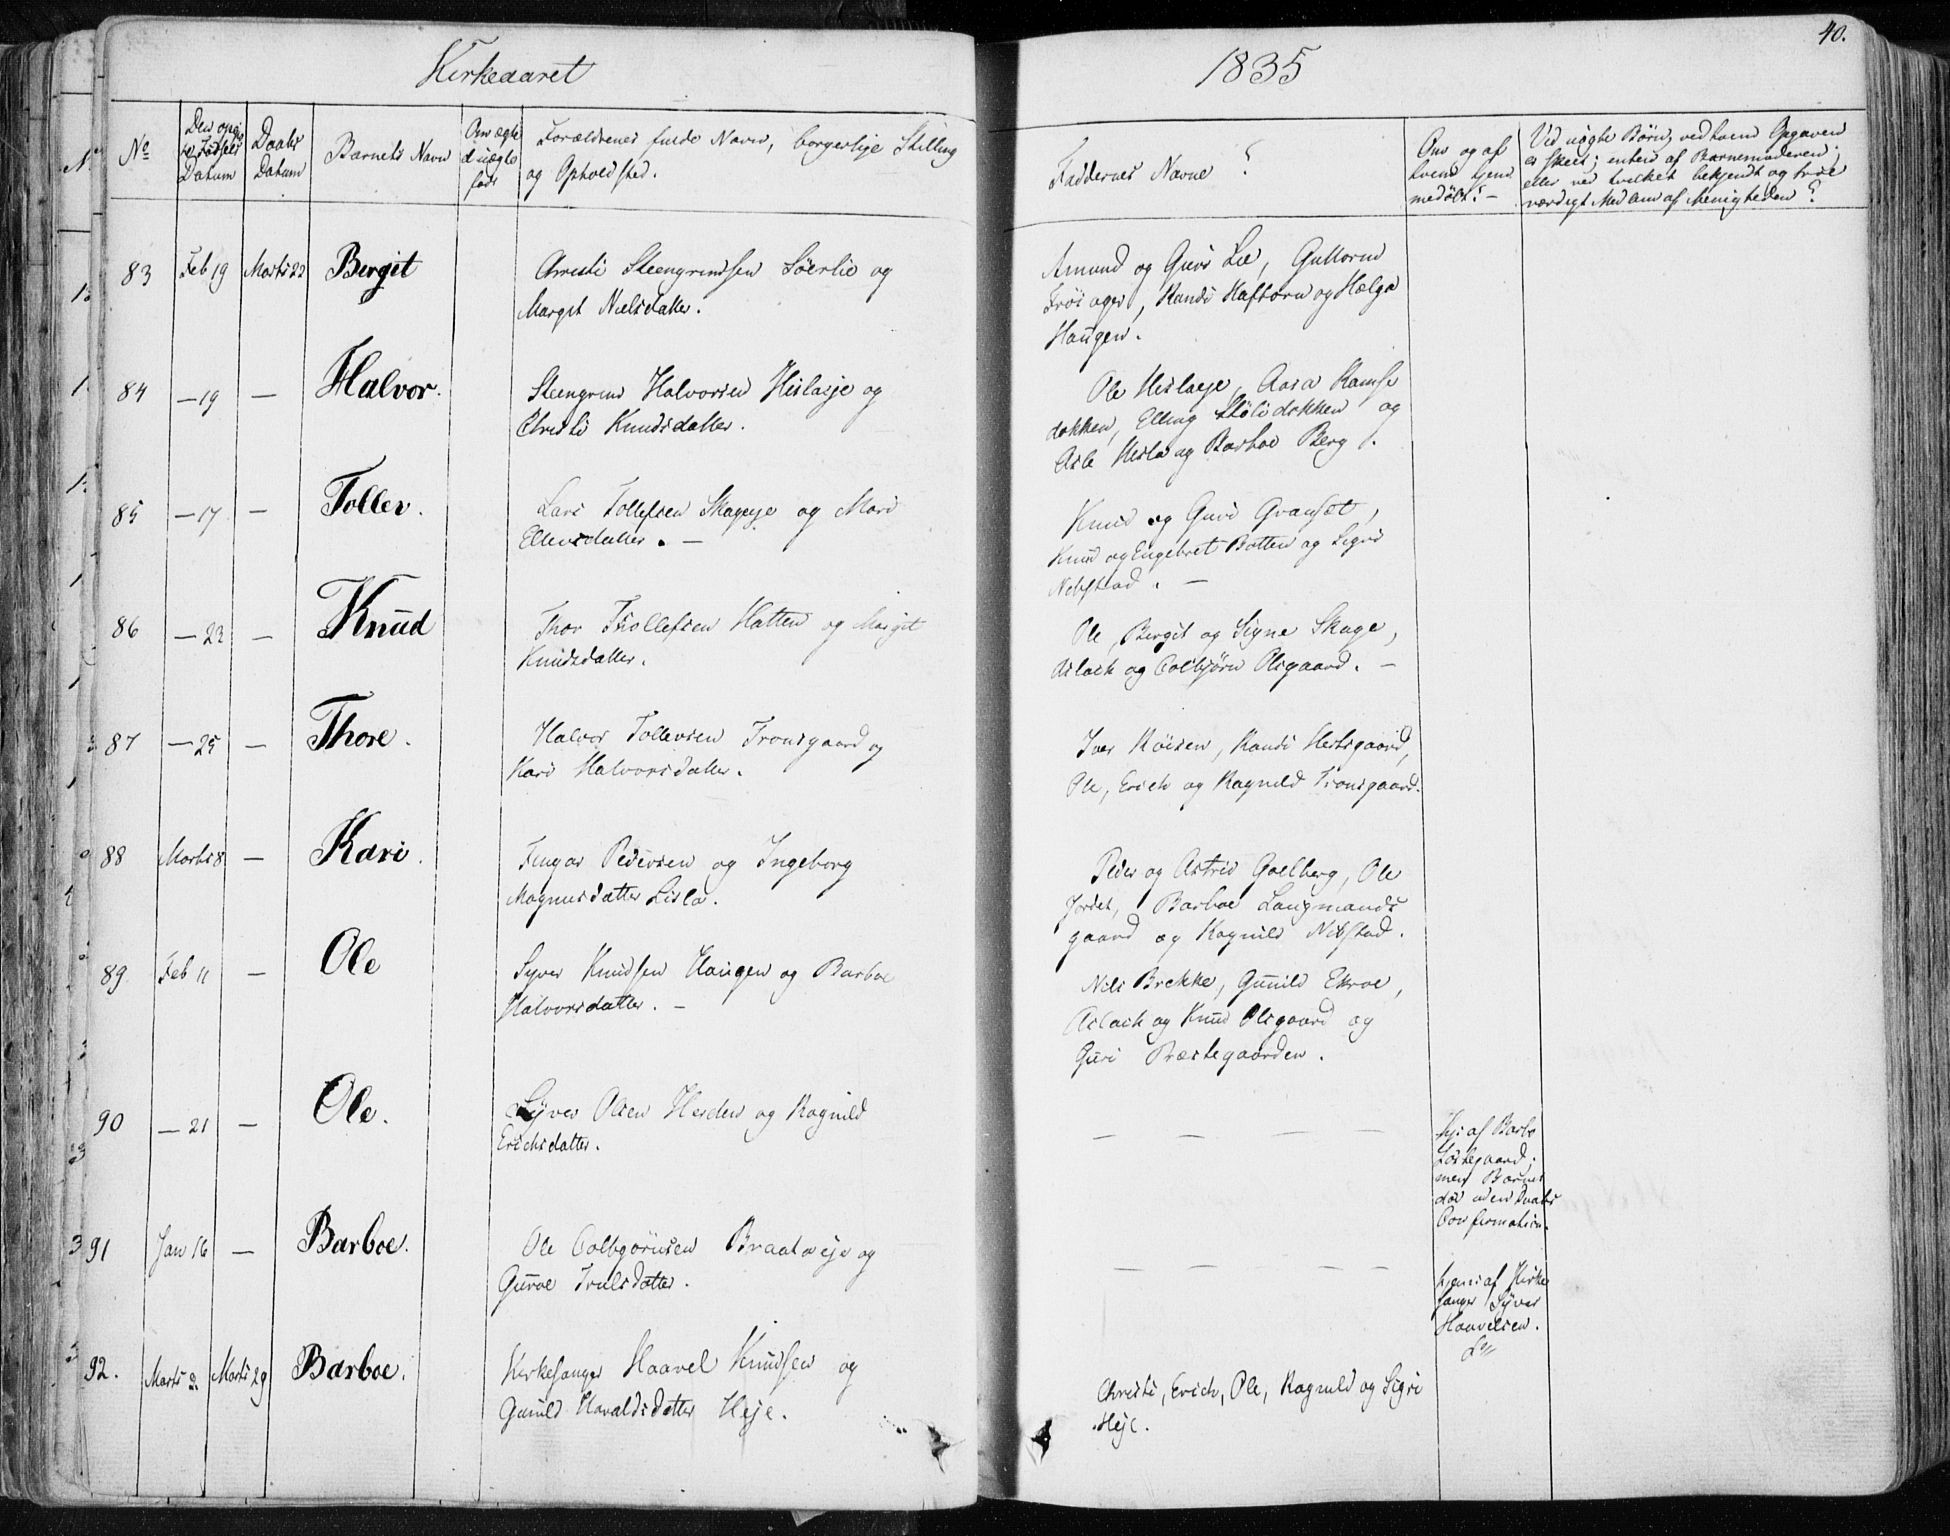 Kirkeaaret
1835
40.
No
Den opgiv
ne Fødsels
Datum
Daabs
Datum
Barnets Navn
Om ægte
el uægte
født
Forældrenes fulde Navn, borgerlige Stilling
og Opholdsted.
Faddernes Navne
Om og af
hvem hjem
medøbt? -
Ved uægte Børn, ved hvem Opgaven
er skeet; enten af Barnemoderen,
eller ved hvilket bekjendt og troe
værdigt Medlem af Menigheden?
83 Feb 19 Marts 22 Bergit
Steengrimsen Söerlie og
Margit Nielsdatter.
Amund og Guri Lie, Guttorm
Frøisager, Randi Haftorn og Hælga
Haugen.
84 — 19 — Halvor.
Steengrim Halvorsen Heslaeje og
Christi Knudsdatter.
Ole Heslaeje, Aasa Ramse
dokken, Elling Stölidokken og
Asle Hesla og Barboe Berg.
85 — 17 — Tollev.
Lars Tollefsen Skageeje og Mari
Ellevsdatter. —
Knud og Guri Gransæt,
Knud og Engebret Botten og Sigri
Nebstad. —
86 — 22 — Knud
Thor Thollefsen Hatten og Margit
Knudsdatter.
Ole, Bergit og Signe Skage,
Aslack og Colbjörn Olsgaard. —
87 — 25 — Thore.
Halvor Tollevsen Tronsgaard og
Kari Halvorsdatter.
Iver Röisen, Randi Hertsgaard,
Ole, Erich og Ragnild Tronsgaard.
88 Marts 8 — Kari.
Pedersen og Ingeborg
Magnusdatter Lisla.
Peder og Astrid Golberg, Ole
Jordet, Barboe Langmands
gaard og Ragnild Nibstad.
89 Feb 11 — Ole
Syver Knudsen Haugen og Barboe
Halvorsdatter. —
Nils Brekke, Gunild Ekroe,
Aslack og Knud Olsgaard og
Guri Præstegaarden.
90 — 21 — Ole.
Syver Olsen Hesden og Ragnild
Erichsdatter.
— — — —
Hj: af Barbo
men Barnet
død uden Daabs
Confirmation.
91 Jan 16 — Barboe.
Ole Colbgörnsen Braataeje og
Guroe Trulsdatter.
— — — —
hjem: af Kirke
sanger Syver
Haavelsen.
92. Marts 2. Marts 29 Barboe.
Kirkesanger Haavel Knudsen og
Gunild Haraldsdatter Heje.
Christi, Erich, Ole, Ragnild og Sigri
Heje.